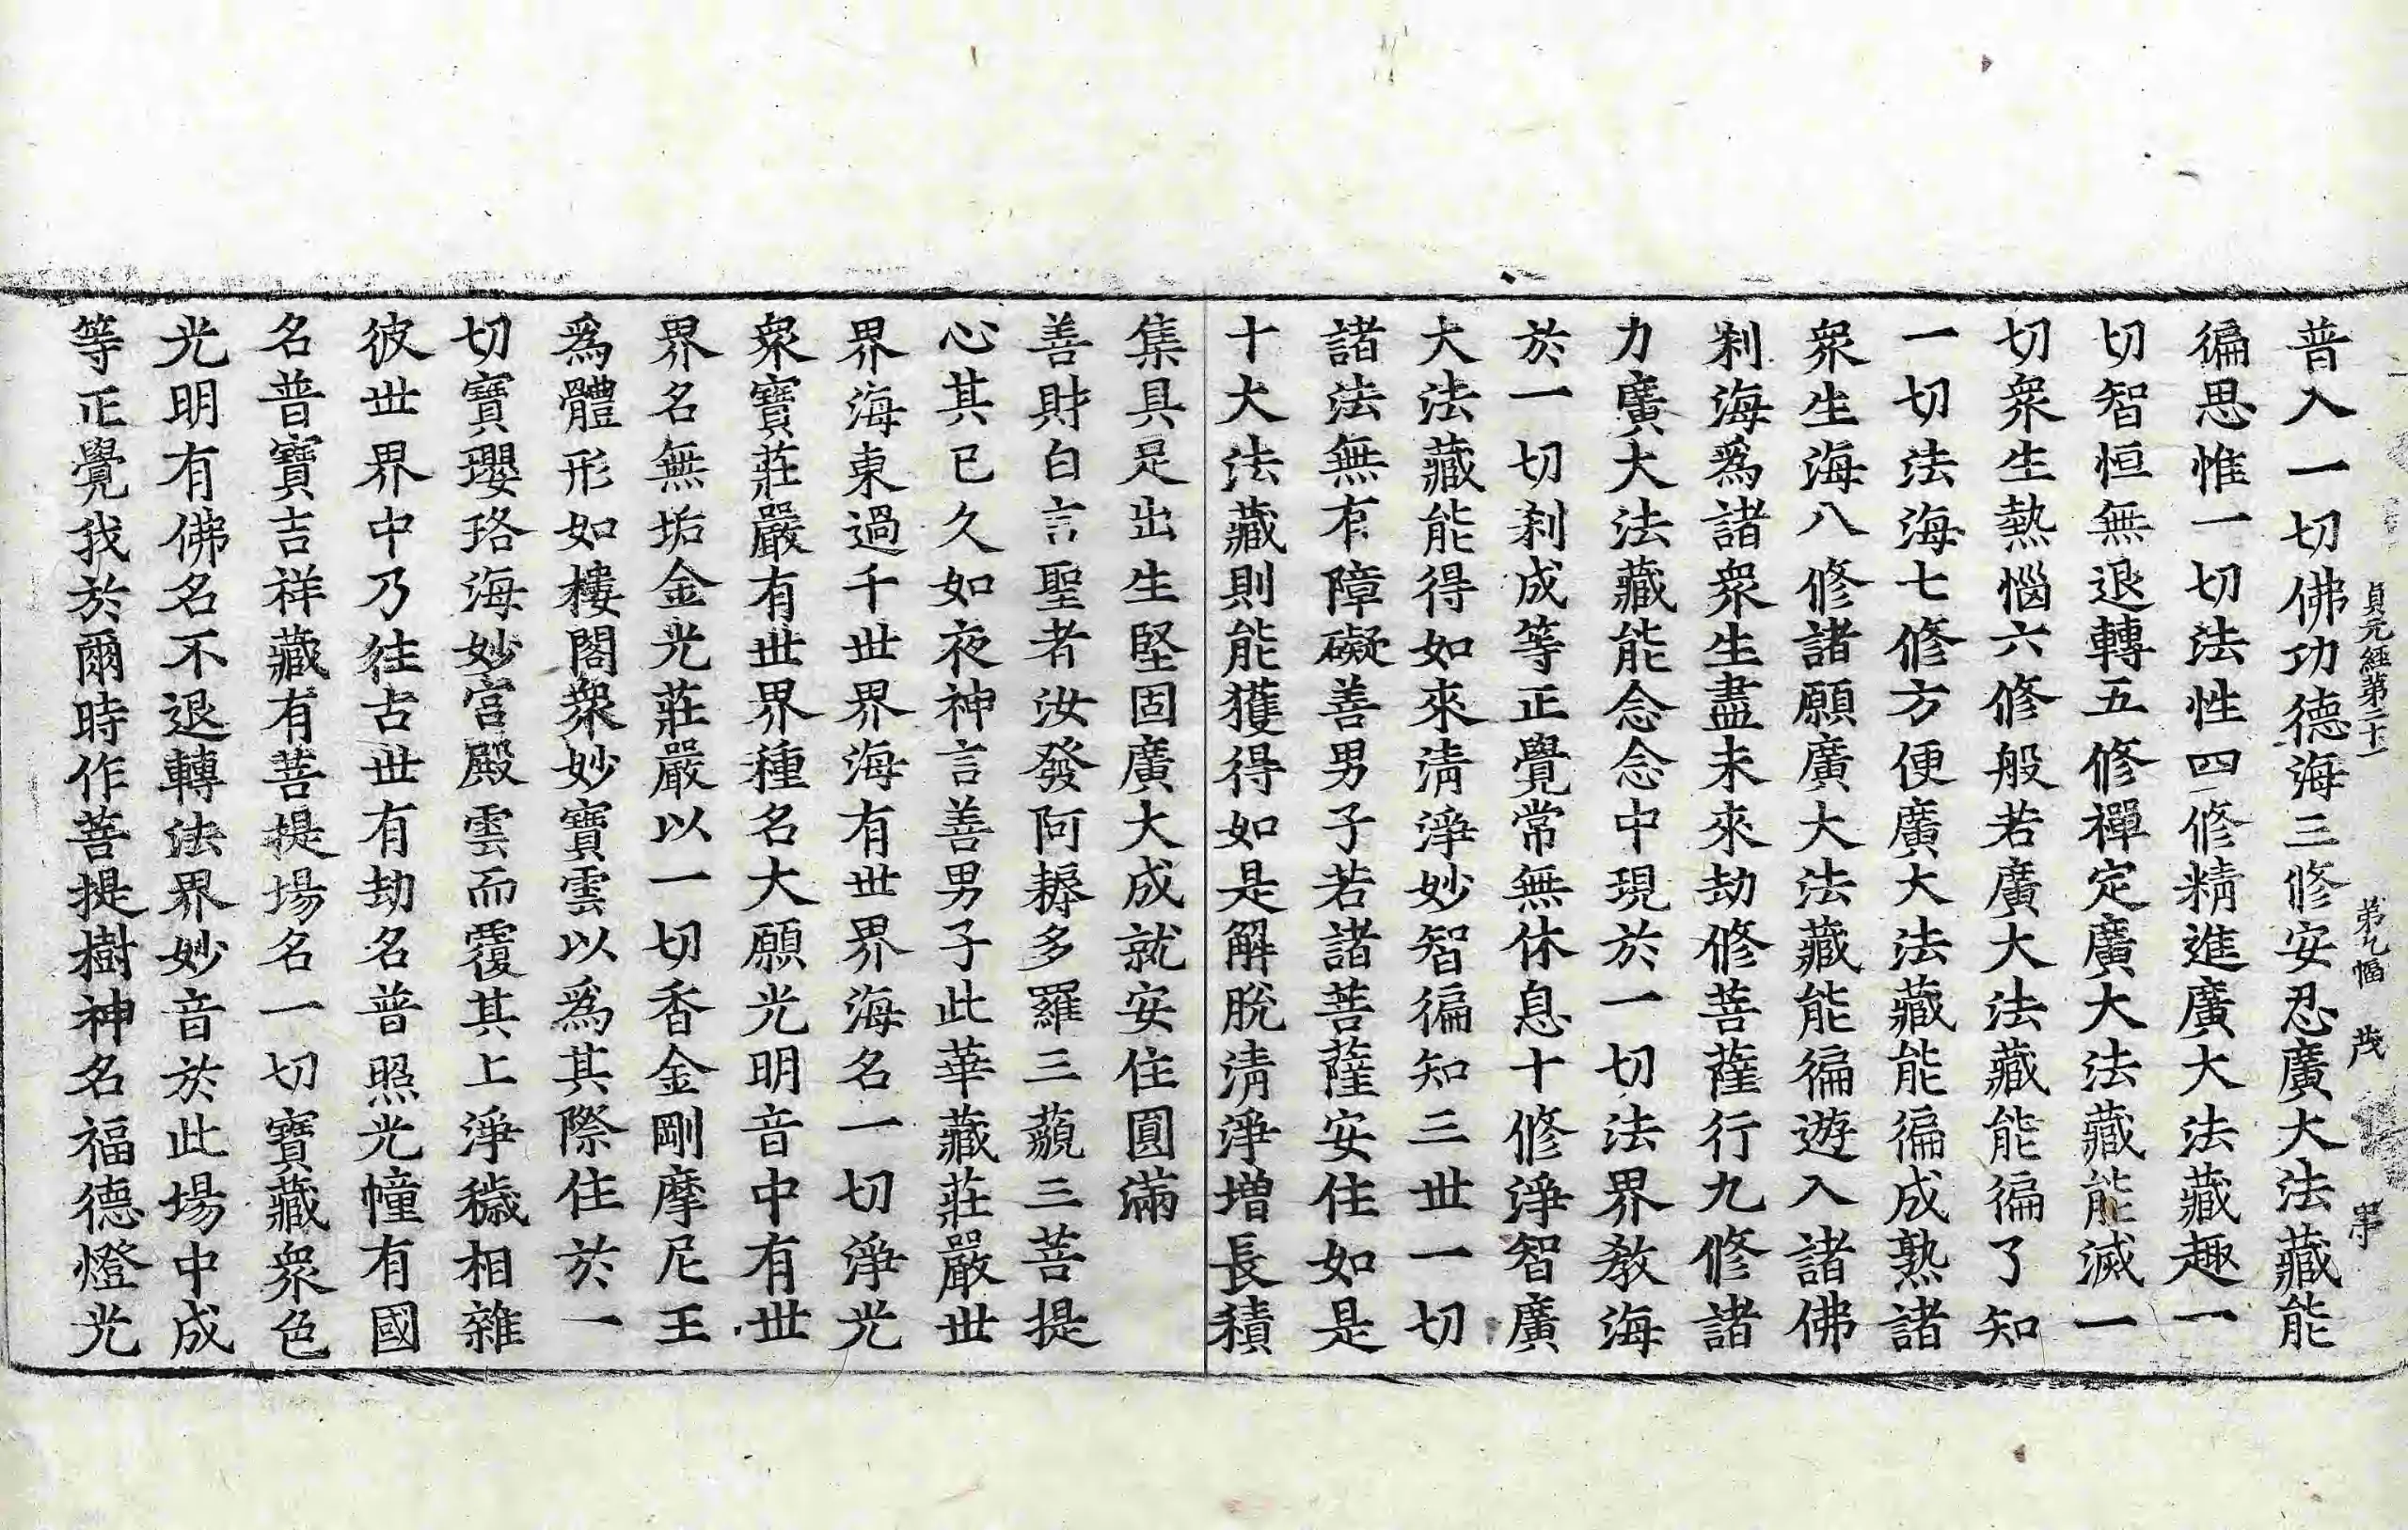 貞元經第二十一 第九幅 茂 字
普入一切佛功德海三修安忍廣大法藏能
徧思惟一切法性四修精進廣大法藏趣一
切智恒無退轉五修禪定廣大法藏能滅一
切衆生熱惱六修般若廣大法藏能徧了知
一切法海七修方便廣大法藏能徧成熟諸
衆生海八修諸願廣大法藏能徧遊入諸佛
刹海爲諸衆生盡未來劫修菩薩行九修諸
力廣大法藏能念念中現於一切法界教海
於一切刹成等正覺常無休息十修淨智廣
大法藏能得如來清淨妙智徧知三世一切
諸法無有障礙善男子若諸菩薩安住如是
十大法藏則能獲得如是解脫淸淨增長積
集具足出生堅固廣大成就安住圓滿
善財白言聖者汝發阿耨多羅三藐三菩提
心其已久如夜神言善男子此華藏莊嚴世
界海東過千世界海有世界海名一切淨光
衆寶莊嚴有世界種名大願光明音中有世
界名無垢金光莊嚴以一切香金剛摩尼王
爲體形如樓閣衆妙寶雲以爲其際住於一
切寶瓔珞海妙宮殿雲而覆其上淨穢相雜
彼世界中乃往古世有劫名普照光幢有國
名普寶吉祥藏有菩提場名一切寶藏衆色
光明有佛名不退轉法界妙音於此場中成
等正覺我於爾時作菩提樹神名福德燈光